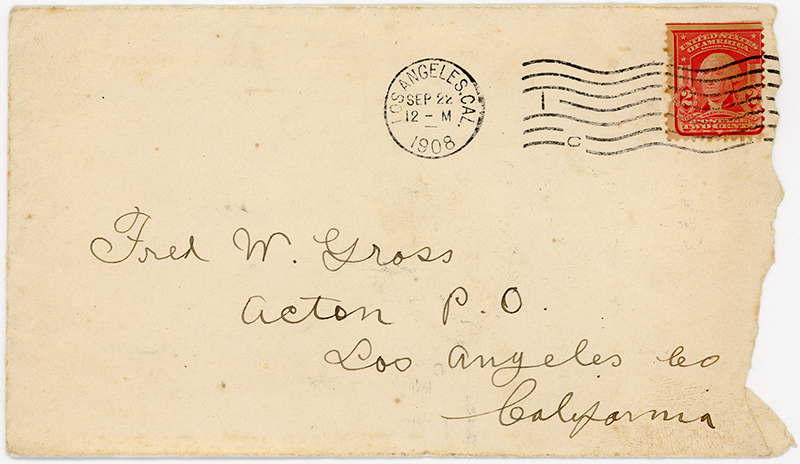 LOS ANGELES, CAL.
SEP 22
12 - M
1908
1
C
UNITED STATES
OF AMERICA
2 2
TWO CENTS
Fred W. Gross
Acton P.O.
Los Angeles Co
California